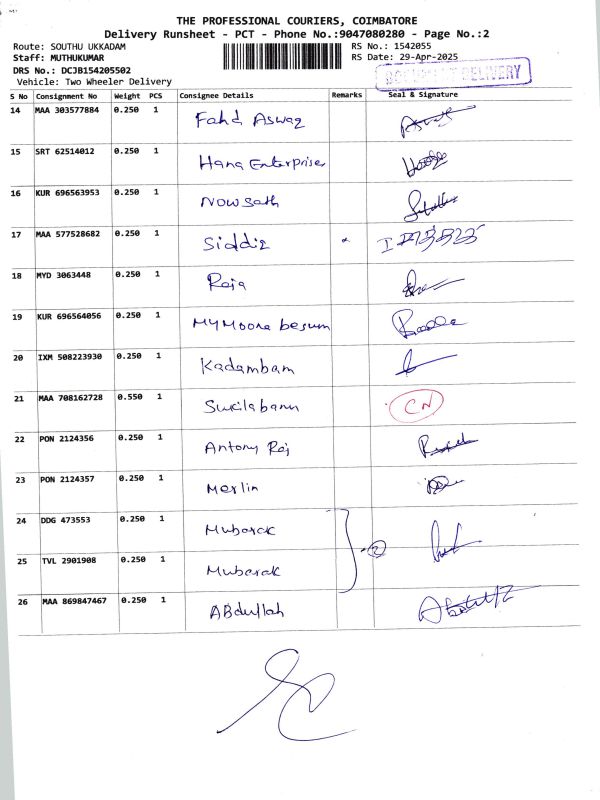 THE PROFESSIONAL COURIERS, COIMBATORE
Delivery Runsheet - PCT - Phone No.:9047080280 - Page No.:2
Route: SOUTHU UKKADAM RS No.: 1542055
Staff: MUTHUKUMAR RS Date: 29-Apr-2025
DRS No.: DCJB154205502 DELIVERY
Vehicle: Two Wheeler Delivery
S No Consignment No Weight PCS Consignee Details Remarks Seal & Signature
14 MAA 303577884 0.250 1 Fahd Aswaq
15 SRT 62514012 0.250 1 Hana Enterprises
16 KUR 696563953 0.250 1 Nowsath
17 MAA 577528682 0.250 1 Siddiz
18 MYD 3063448 0.250 1 Raja
19 KUR 696564056 0.250 1 MyMoona begum
20 IXM 508223930 0.250 1 Kadambam
21 MAA 708162728 0.550 1 CN
22 PON 2124356 0.250 1 Antony Raj
23 PON 2124357 0.250 1 Merlin
24 DDG 473553 0.250 1 Mubarak
2
25 TVL 2901908 0.250 1 Mubarak
26 MAA 869847467 0.250 1 ABdullah